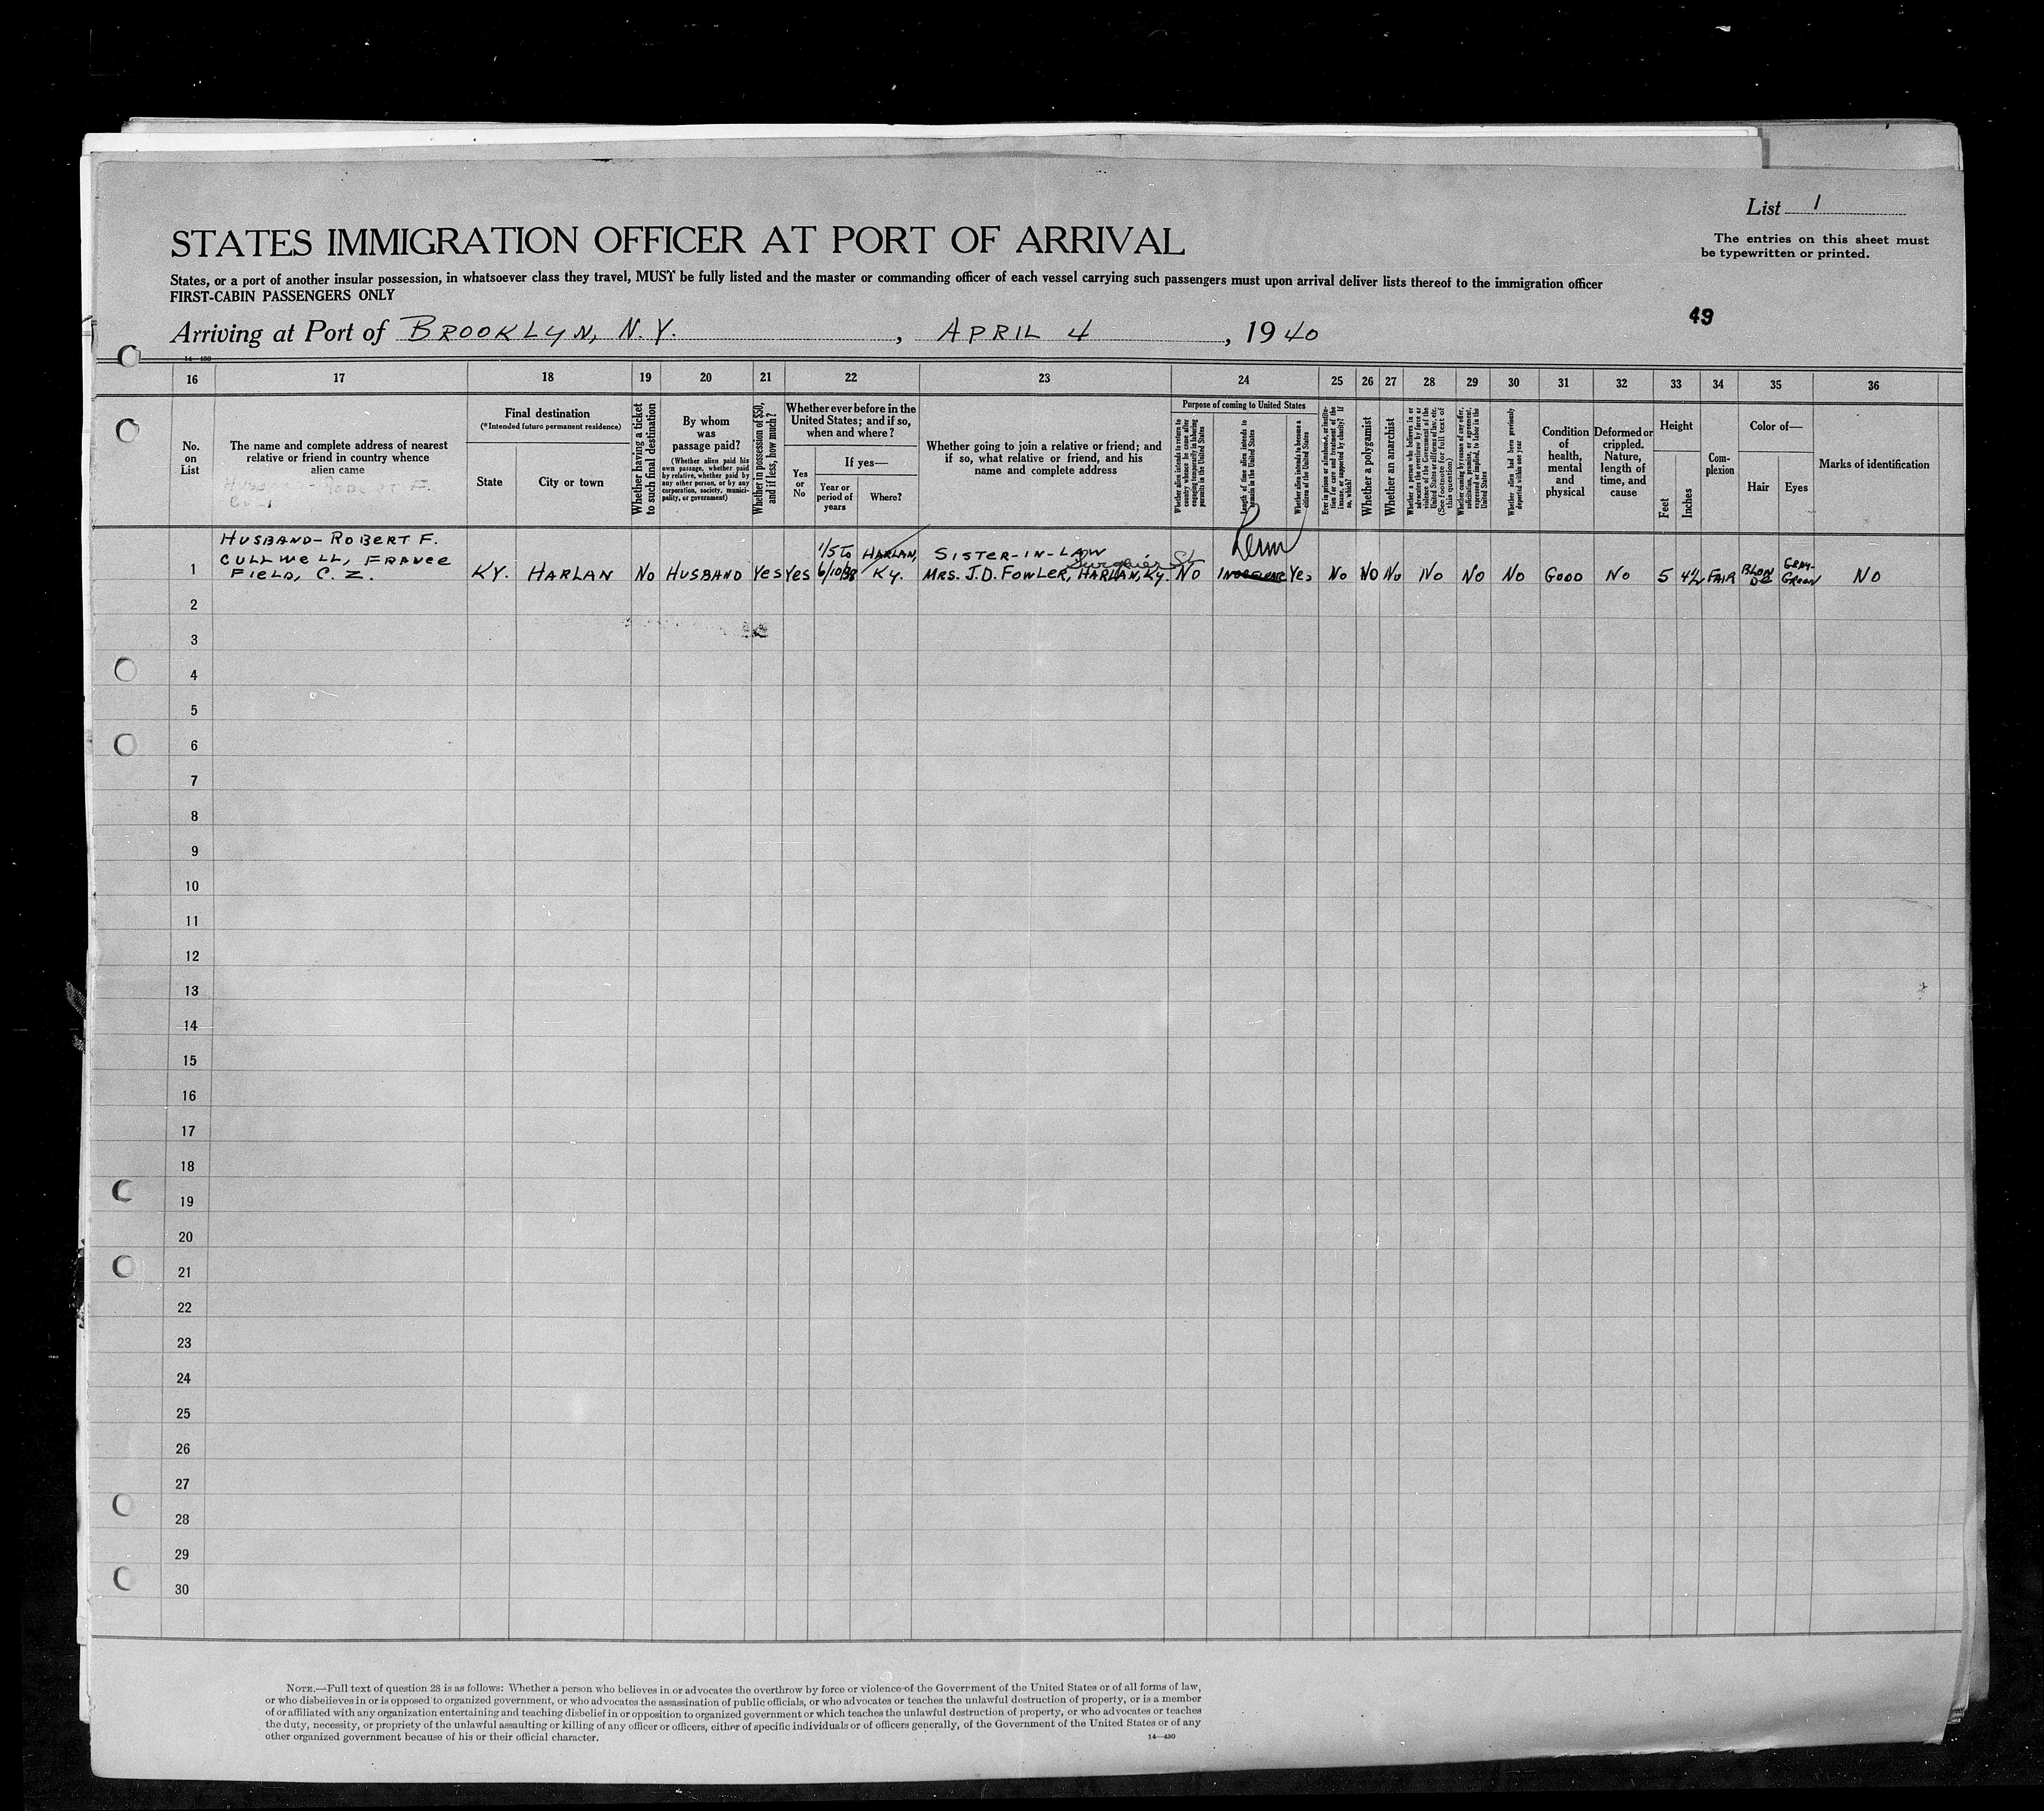 List 1
STATES IMMIGRATION OFFICER AT PORT OF ARRIVAL
The entries on this sheet must
be typewritten or printed.
States, or a port of another insular possession, in whatsoever class they travel, MUST be fully listed and the master or commanding officer of each vessel carrying such passengers must upon arrival deliver lists thereof to the immigration officer
FIRST-CABIN PASSENGERS ONLY
49
Arriving at Port of BROOKLYN, N.Y. , APRIL 4 , 1940
14—430
16 17 18 19 20 21 22 23 24 25 26 27 28 29 30 31 32 33 34 35 36
No.
on
List
The name and complete address of nearest
relative or friend in country whence
alien came
ROBERT F.
Final destination
(*Intended future permanent residence)
State
City or town
Whether having a ticket
to such final destination
By whom
was
passage paid?
(Whether alien paid his
own passage, whether paid
by relative, whether paid by
any other person, or by any
corporation, society, munici-
pality, or government)
Whether in possession of $50,
and if less, how much?
Whether ever before in the
United States; and if so,
when and where?
Yes
or
No
If yes—
Year or
period of
years
Where?
Whether going to join a relative or friend; and
if so, what relative or friend, and his
name and complete address
Purpose of coming to United States
Whether alien intends to return to
country whence he came after
engaging temporarily in laboring
pursuits in the United States
Length of time alien intends to
remain in the United States
Whether alien intends to become a
citizen of the United States
Ever in prison or almshouse, or institu-
tion for care and treatment of the
insane, or supported by charity? If
so, which?
Whether a polygamist
Whether an anarchist
Whether a person who believes in or
advocates the overthrow by force or
violence of the Government of the
United States or all forms of law, etc.
(See footnote for full text of
this question)
Whether coming by reason of any offer,
solicitation, promise, or agreement,
expressed or implied, to labor in the
United States
Whether alien had been previously
deported within one year
Condition
of
health,
mental
and
physical
Deformed or
crippled.
Nature,
length of
time, and
cause
Height
Feet
Inches
Com-
plexion
Color of—
Hair
Eyes
Marks of identification
HUSBAND-ROBERT F.
CULLWELL, FRANCE
FIELD, C. Z.
1 KY. HARLAN NO HUSBAND Yes Yes
1/5 To
6/10/38
HARLAN,
KY.
SISTER-IN-LAW
MRS. J.D. FOWLER, HARLAN, KY.
St.
NO
Perm
Yes No NO No No NO NO GOOD NO 5 4½ FAIR
BLON
DE
GRAY-
GREEN
NO
2
3
4
5
6
7
8
9
10
11
12
13
14
15
16
17
18
19
20
21
22
23
24
25
26
27
28
29
30
NOTE.—Full text of question 28 is as follows: Whether a person who believes in or advocates the overthrow by force or violence of the Government of the United States or of all forms of law,
or who disbelieves in or is opposed to organized government, or who advocates the assassination of public officials, or who advocates or teaches the unlawful destruction of property, or is a member
of or affiliated with any organization entertaining and teaching disbelief in or opposition to organized government or which teaches the unlawful destruction of property, or who advocates or teaches
the duty, necessity, or propriety of the unlawful assaulting or killing of any officer or officers, either of specific individuals or of officers generally, of the Government of the United States or of any
other organized government because of his or their official character.
14—430